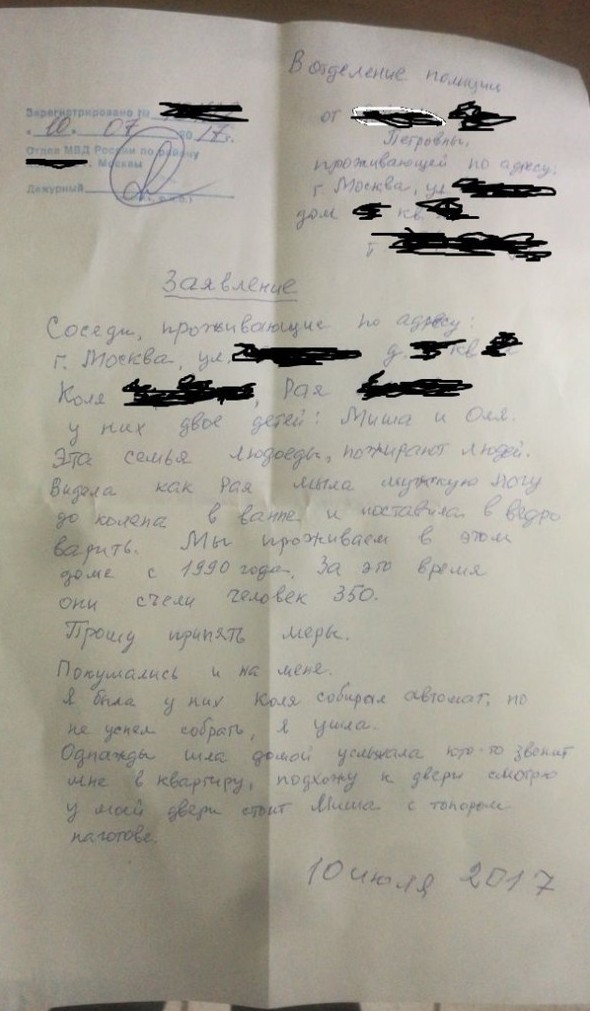 В отделение полиции
Зарегистрировано №
10. 07 2017г.
Отдел МВД России по району
г. Москвы
Дежурный
от
Петровны,
проживающей по адресу:
г. Москва, ул.
дом кв.
т
Заявление
Соседи, проживающие по адресу:
г. Москва, ул. д. кв
Коля , Рая
у них двое детей: Миша и Оля.
Эта семья людоеды, пожирают людей.
Видела как Рая мыла мужскую ногу
до колена в ванне и поставила в ведро
варить. Мы проживаем в этом
доме с 1990 года. За это время
они съели человек 350.
Прошу принять меры.
Покушались и на мене.
Я была у них Коля собирал автомат, но
не успел собрать, я ушла.
Однажды шла домой услышала кто-то звонит
мне в квартиру, подхожу к двери смотрю
у моей двери стоит Миша с топором
наготове.
10 июля 2017